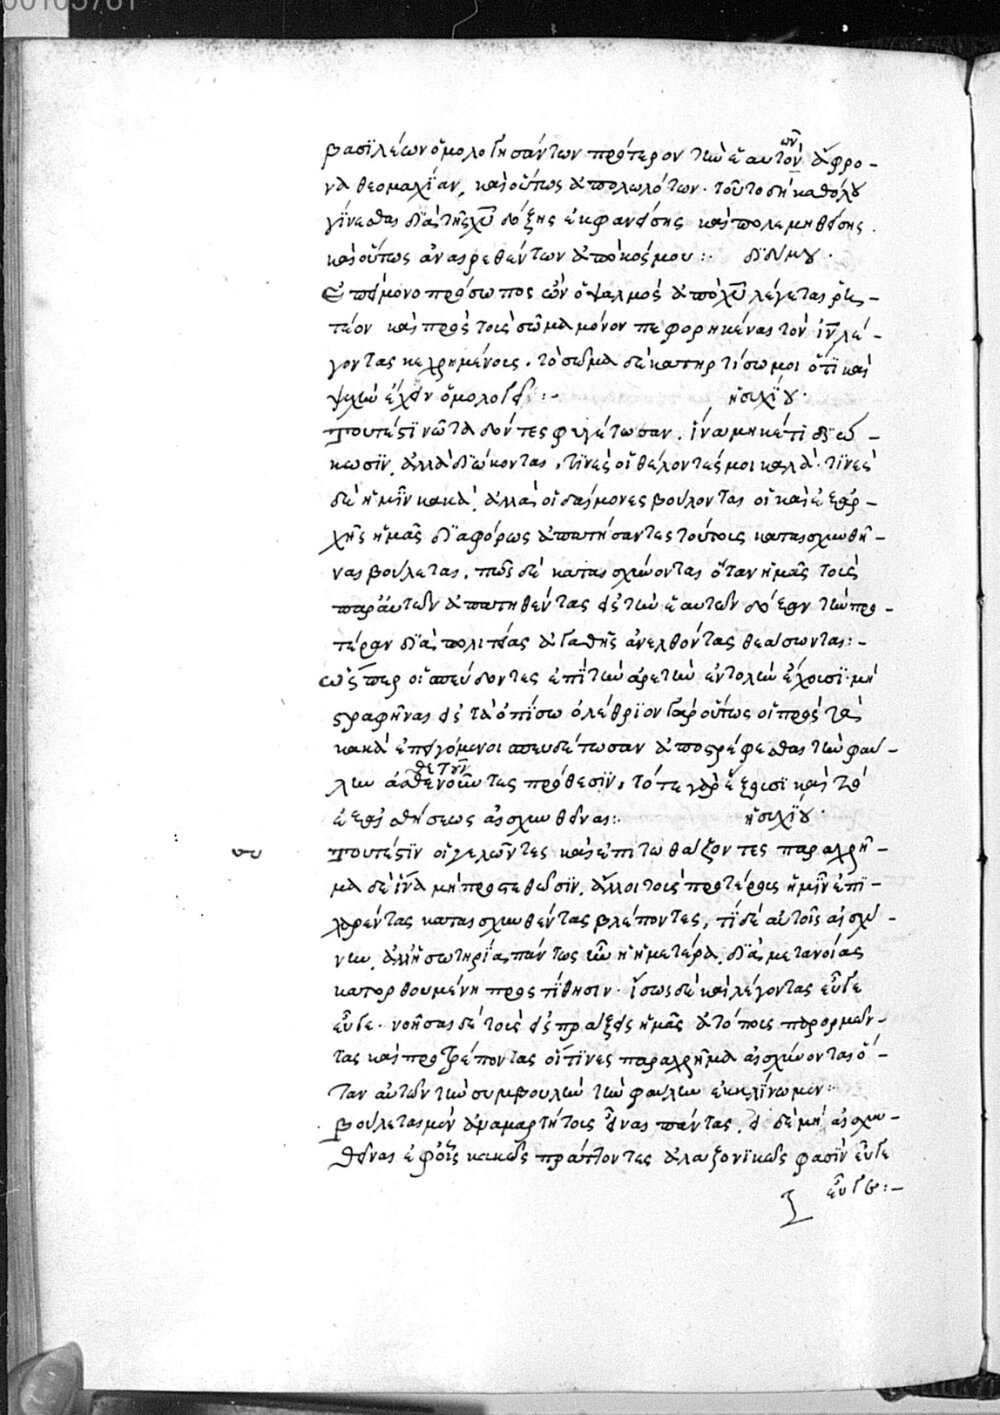 00103761
βασϊλείων ὁμολογησάντων πρότερον τὴν ἑαυτῶν ἄφρο-
να θεομαχΐαν, καὶ οὕτως ἀπολωλότων. τοῦτο δὴ καθόλου
γίνεσθαι διὰ τῆς χυ δόξης ἐκφανείσης καὶ πολεμηθείσης.
καὶ οὕτως ἀναιρεθέντων ἀπὸ κόσμου :. διδύμου.
Ἐπεὶ μονοπρόσωπος ὢν ὁ ψαλμὸς ἀπὸ χυ λέγεται ῥη-
τέον καὶ πρὸς τοὺς σῶμα μόνον πεφορηκέναι τὸν ιν λέ-
γοντας κεχρημένοις. τὸ σῶμα δὲ κατηρτίσω μοι ὅτι καὶ
ψυχὴν ἔχειν ὁμολογεῖ :- ἡσυχίου.
Τουτέστιν νῶτα δόντες φυγέτωσαν. ἵνα μηκέτι διώ-
κωσιν, ἀλλὰ διώκονται. τίνες οἱ θέλοντές μοι κακά. τίνες
δὲ ἡμῖν κακὰ, ἀλλ' οἱ δαίμονες βούλονται οἱ καὶ ἐξαρ-
χῆς ἡμᾶς διαφόρως ἀπατήσαντες τούτοις καταισχυνθῆ-
ναι βούλεται. πῶς δὲ καταισχύνονται ὅταν ἡμᾶς τοὺς
παρ' αὐτῶν ἀπατηθέντας εἰς τὴν ἑαυτῶν δόξαν τὴν προ-
τέραν διὰ πολιτείας ἀγαθῆς ἀνελθόντας θεάσωνται :-
ὥσπερ οἱ σπεύδοντες ἐπὶ τὴν ἀρετὴν ἐντολὴν ἔχουσι μὴ
στραφῆναι εἰς τὰ ὀπίσω ὀλέθριον γὰρ οὕτως οἱ πρὸς τὰ
κακὰ ἐπειγόμενοι σπευδέτωσαν ἀποστρέφεσθαι τὴν φαύ-
λην ἀθετοῦντες πρόθεσιν, τότε γὰρ ἕξουσι καὶ τὸ
ἐξ αἰσθήσεως αἰσχυνθῆναι :. ἡσυχίου.
Τουτέστιν οἱ γελῶντες καὶ ἐπιτωθάζοντες παραχρῆ-
μα δὲ ἵνα μὴ προστεθῶσιν, ἄλλοι τοὺς προτέρους ἡμῖν ἐπι-
χαρέντας καταισχυνθέντας βλέποντες, τί δὲ αὐτοῖς αἰσχύ-
νην, ἀλλ' ἢ σωτηρία πάντως ἣν ἡ ἡμετέρα, διὰ μετανοίας
κατορθουμένη προστίθησιν. ἴσως δὲ καὶ λέγοντας εὖγε
εὖγε. νοῆσαι δὲ τοὺς εἰς πράξεις ἡμᾶς ἀτόπους παρορμῶν-
τας καὶ προτρέποντας οἵτινες παραχρῆμα αἰσχύνονται ὅ-
ταν αὐτῶν τὴν συμβουλὴν τὴν φαύλην ἐκκλίνωμεν :.
βούλεται μὲν ἀναμαρτήτους εἶναι πάντας, εἰ δὲ μὴ, αἰσχυν-
θῆναι ἐφ' οἷς κακῶς πράττοντες ἀλαζονικῶς φασὶν εὖγε
εὖγε :-